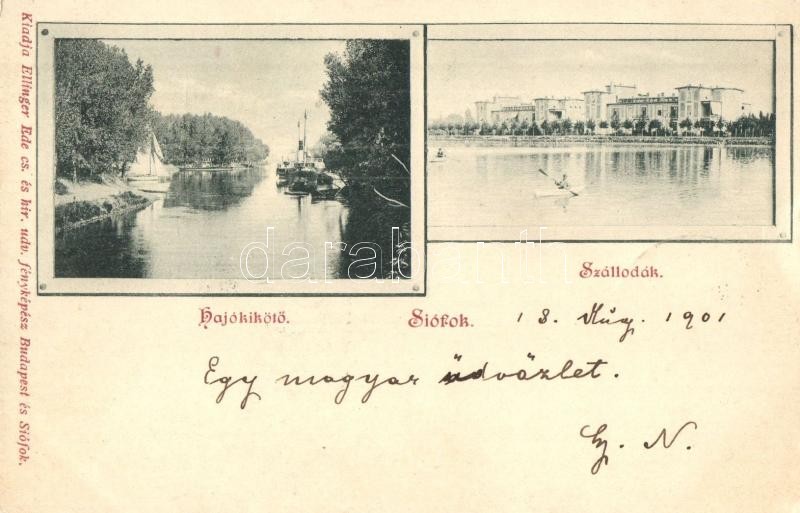 Kiadja Ellinger Ede cs. és kir. udv. fényképész Budapest és Siófok.
darabanth
Szállodák.
Hajókikötő.
Siófok. 18. Aug. 1901
Egy magyar üdvözlet.
G. N.